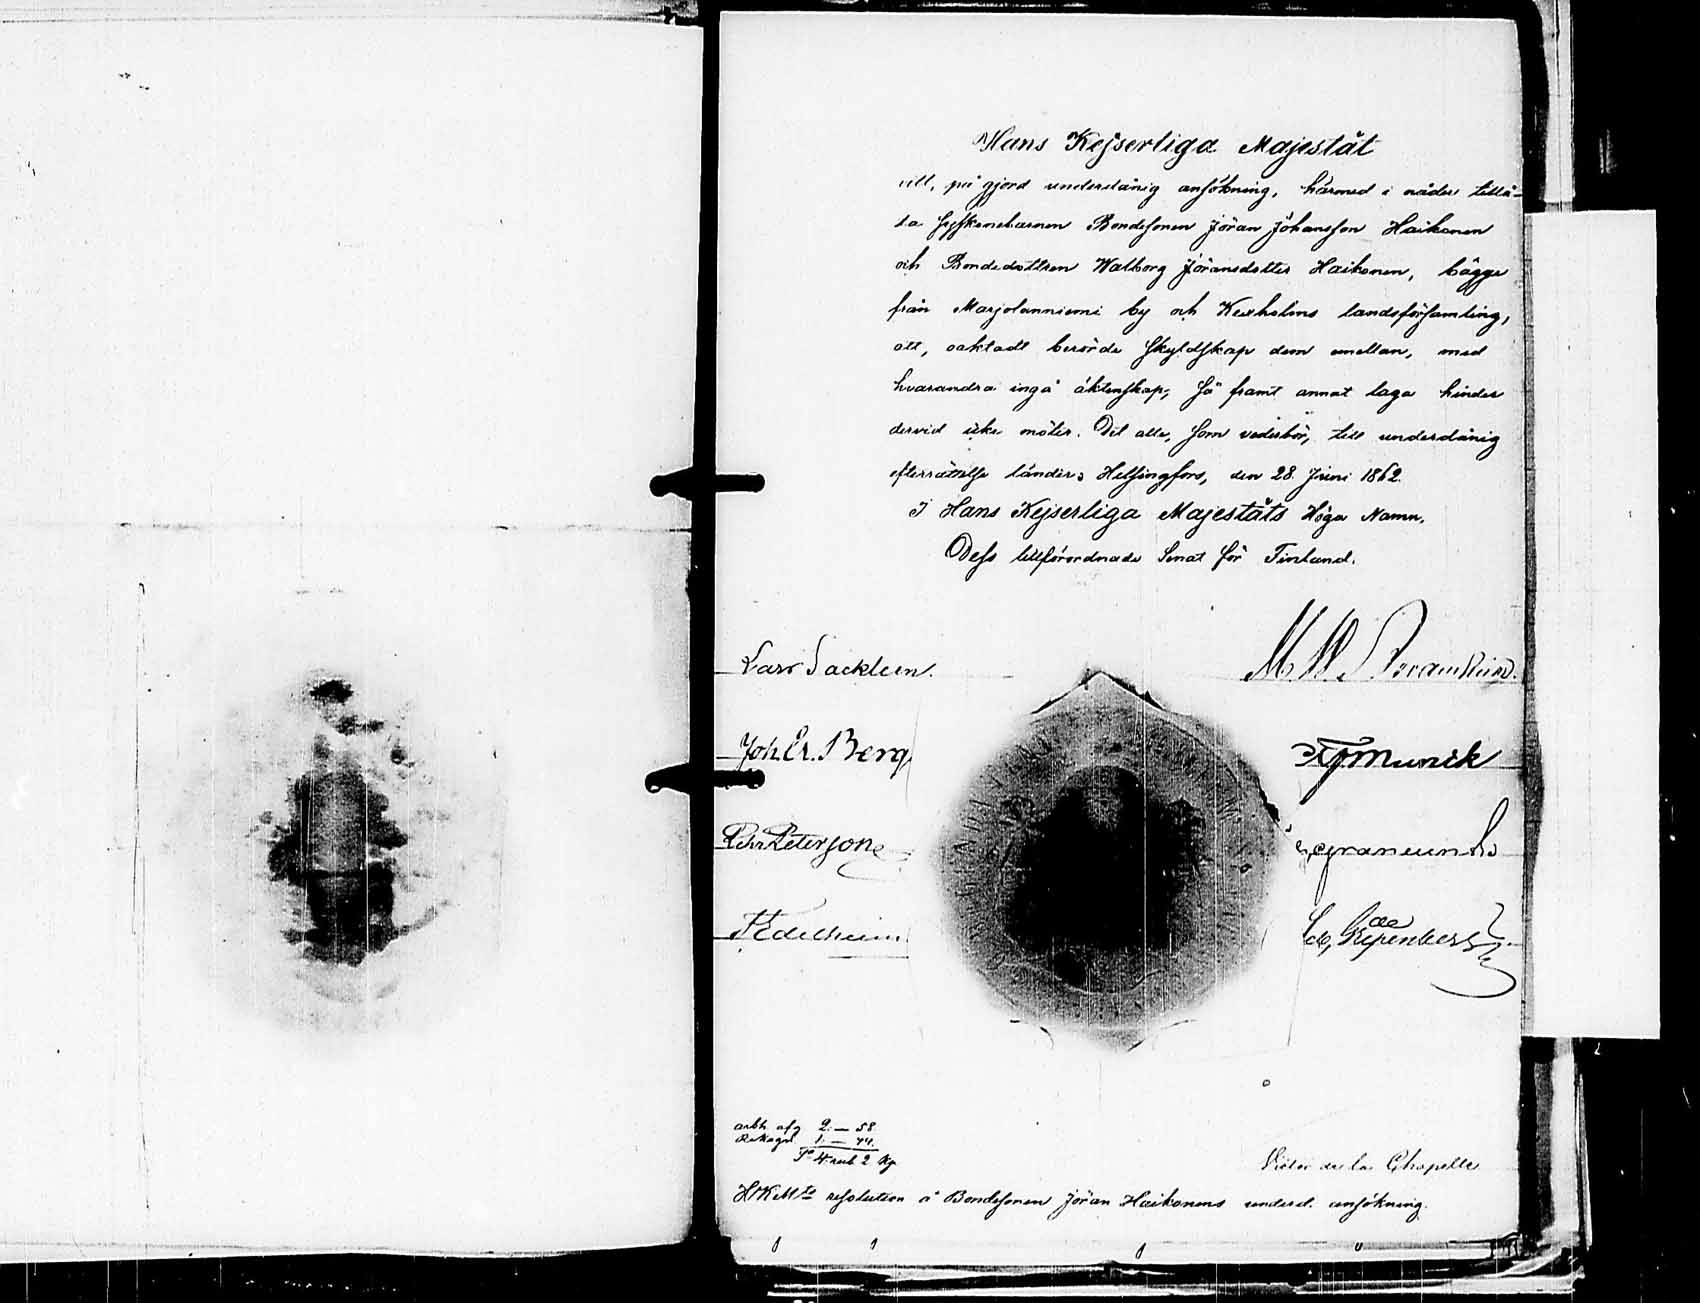 Hans Kejserliga Majestät
vill, på gjord underdånig ansökning, härmed i nåder tillå-
ta Syskonebarnen Bondesonen Jöran Johansson Haikonen
och Bondedottren Walborg Jöransdotter Haikonen, bägge
från Marjolanniemi by och Kexholms landsförsamling,
att, oaktadt berörde skyldskap dem emellan, med
hvarandra ingå äktenskap, så framt annat laga hinder
dervid icke möter. Det alle, som vederbör, till underdånig
efterrättelse länder. Helsingfors, den 28 Juni 1862.
I Hans Kejserliga Majestäts Höga Namn,
Dess tillförordnade Senat för Finland.
Lars Sacklén.
Joh. Er. Berg
Pehr Peterson
Edelheim
Munck
Victor de la Chapelle
arkb. afg 2.— 58.
Rekogn. 1.— 44.
Sa 4 rub 2 Kp
HKMts resolution å Bondesonen Jöran Haikonens underd. ansökning.